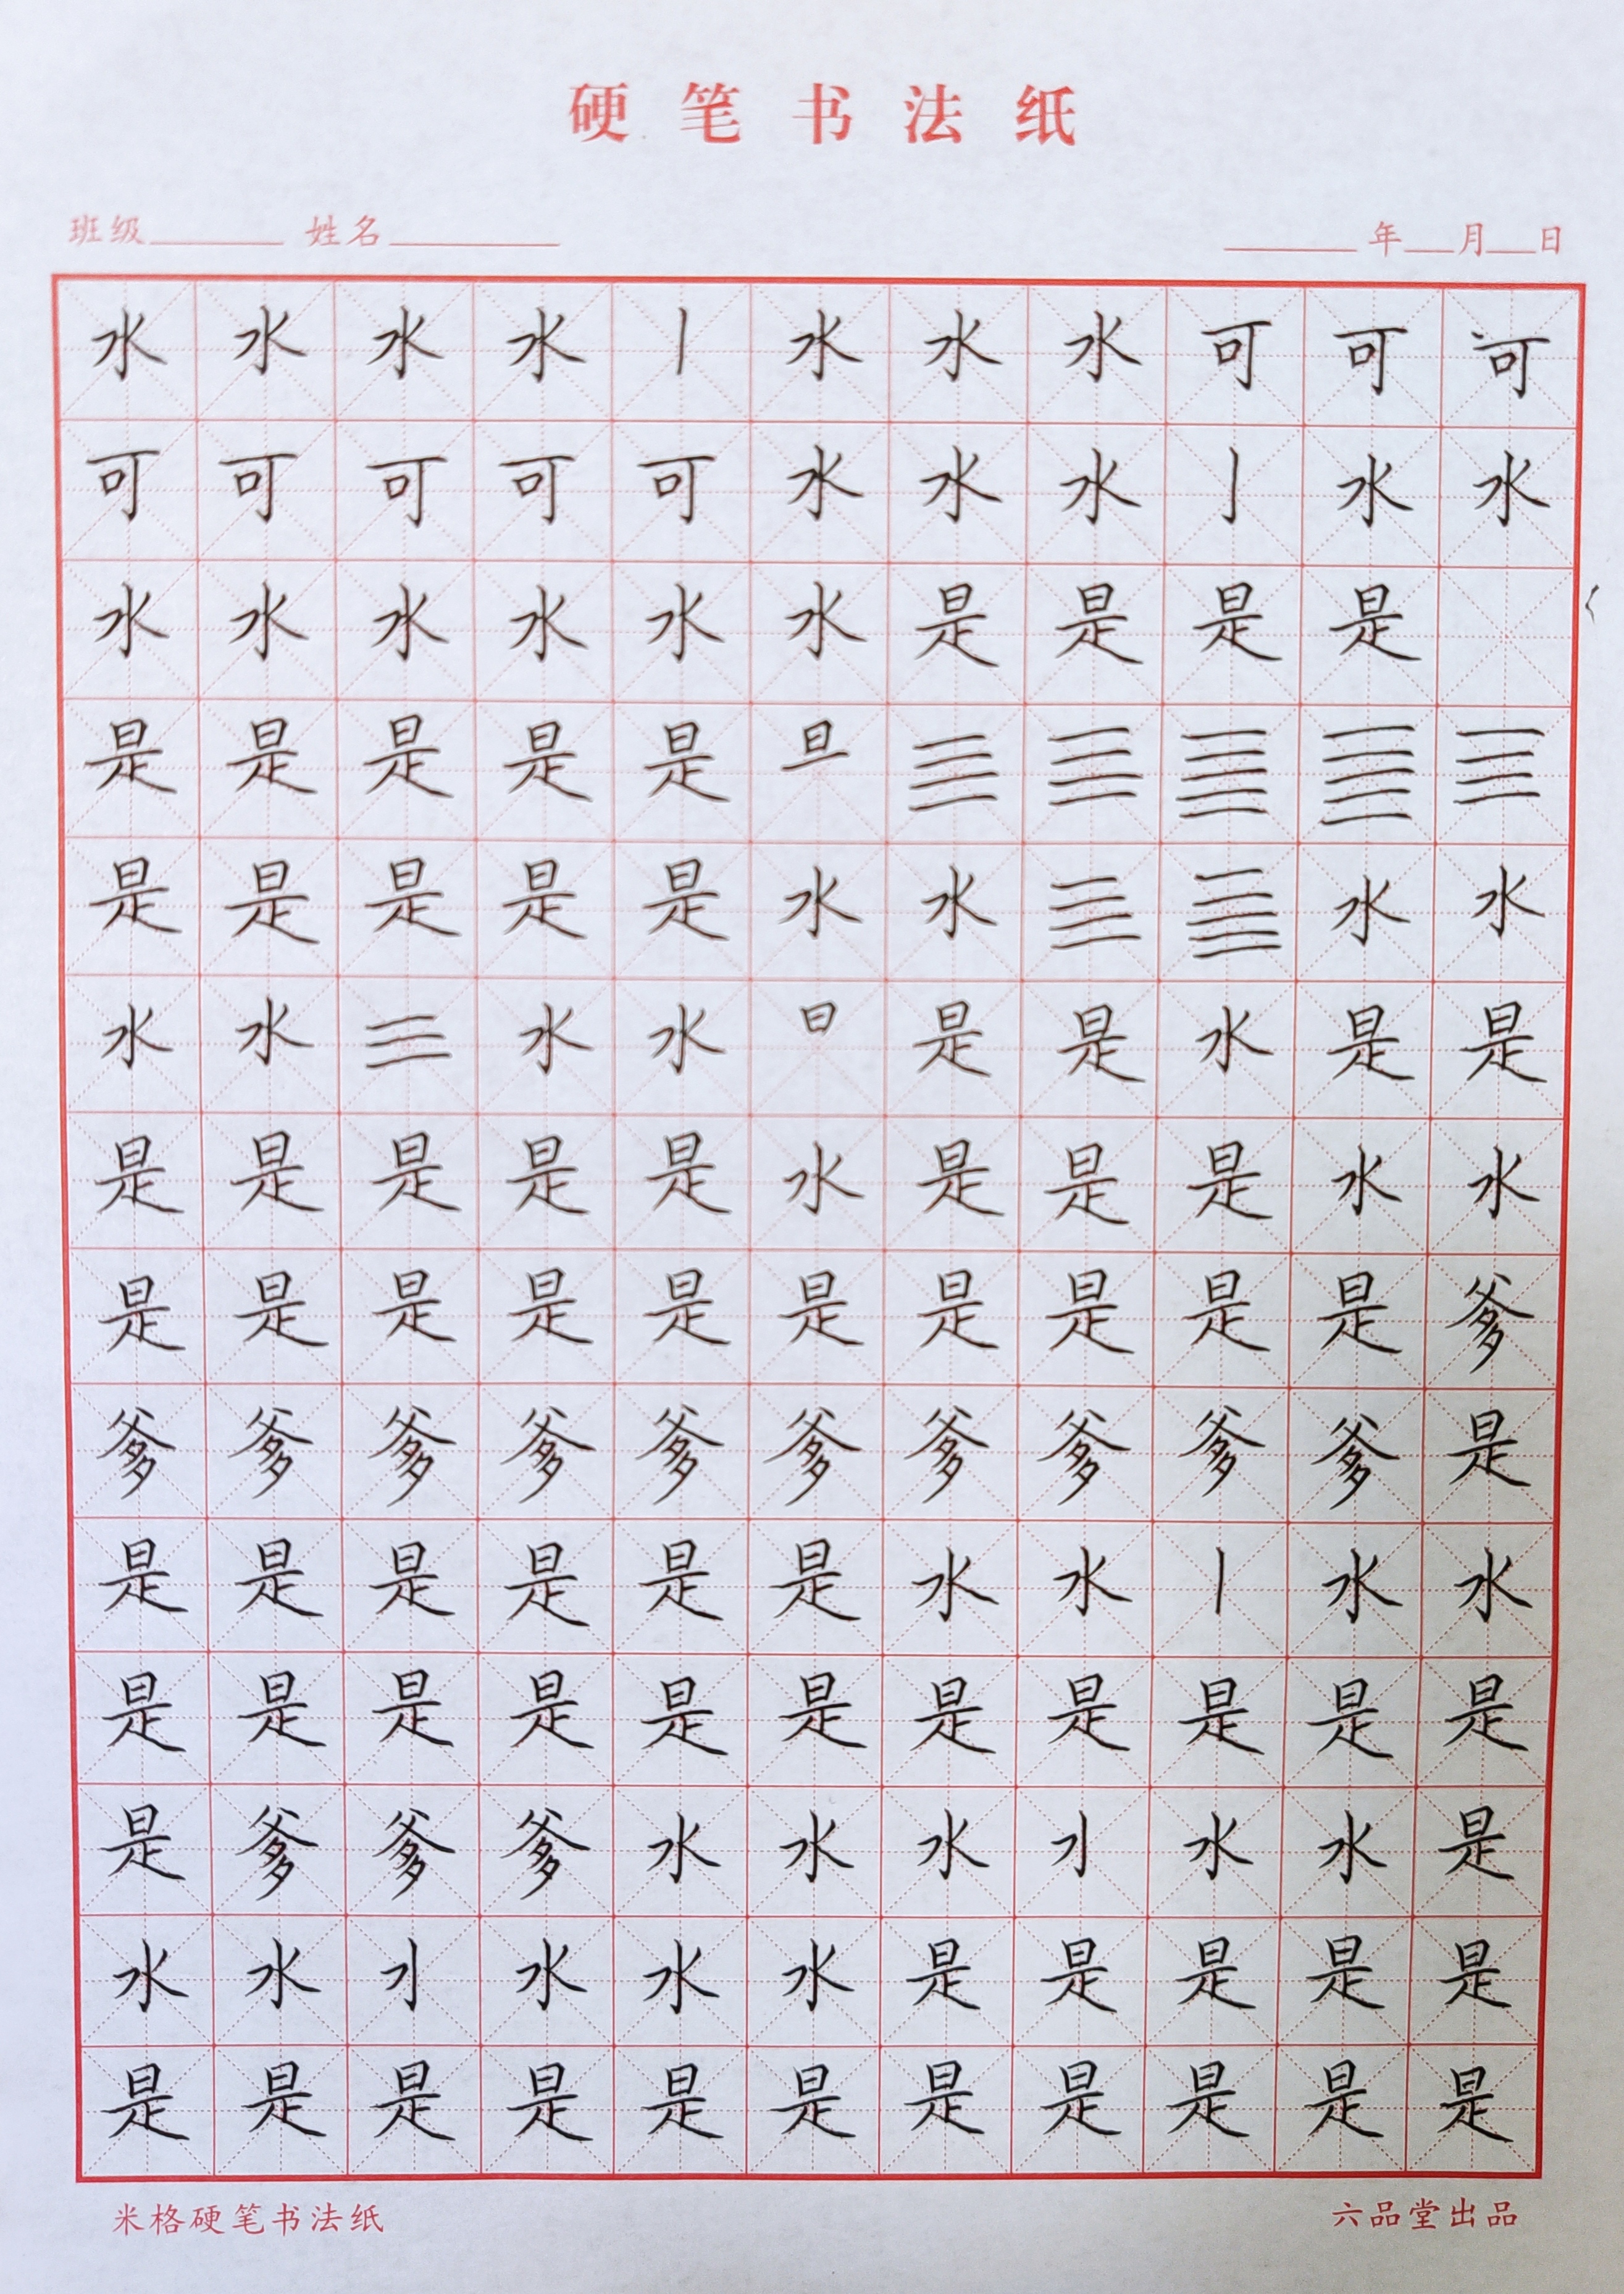 硬笔书法纸
班级 姓名 年 月 日
水水水水丨水水水可可可
可可可可可水水水亅水水
水水水水水水是是是是
是是是是是旦
是是是是是水水水水
水水水水日是是水是是
是是是是是水是是是水水
是是是是是是是是是是爹
爹爹爹爹爹爹爹爹爹爹是
是是是是是是水水丨水水
是是是是是是是是是是是
是爹爹爹水水水水水是
水水水水水是是是是是
是是是是是是是是是是是
米格硬笔书法纸 六品堂出品